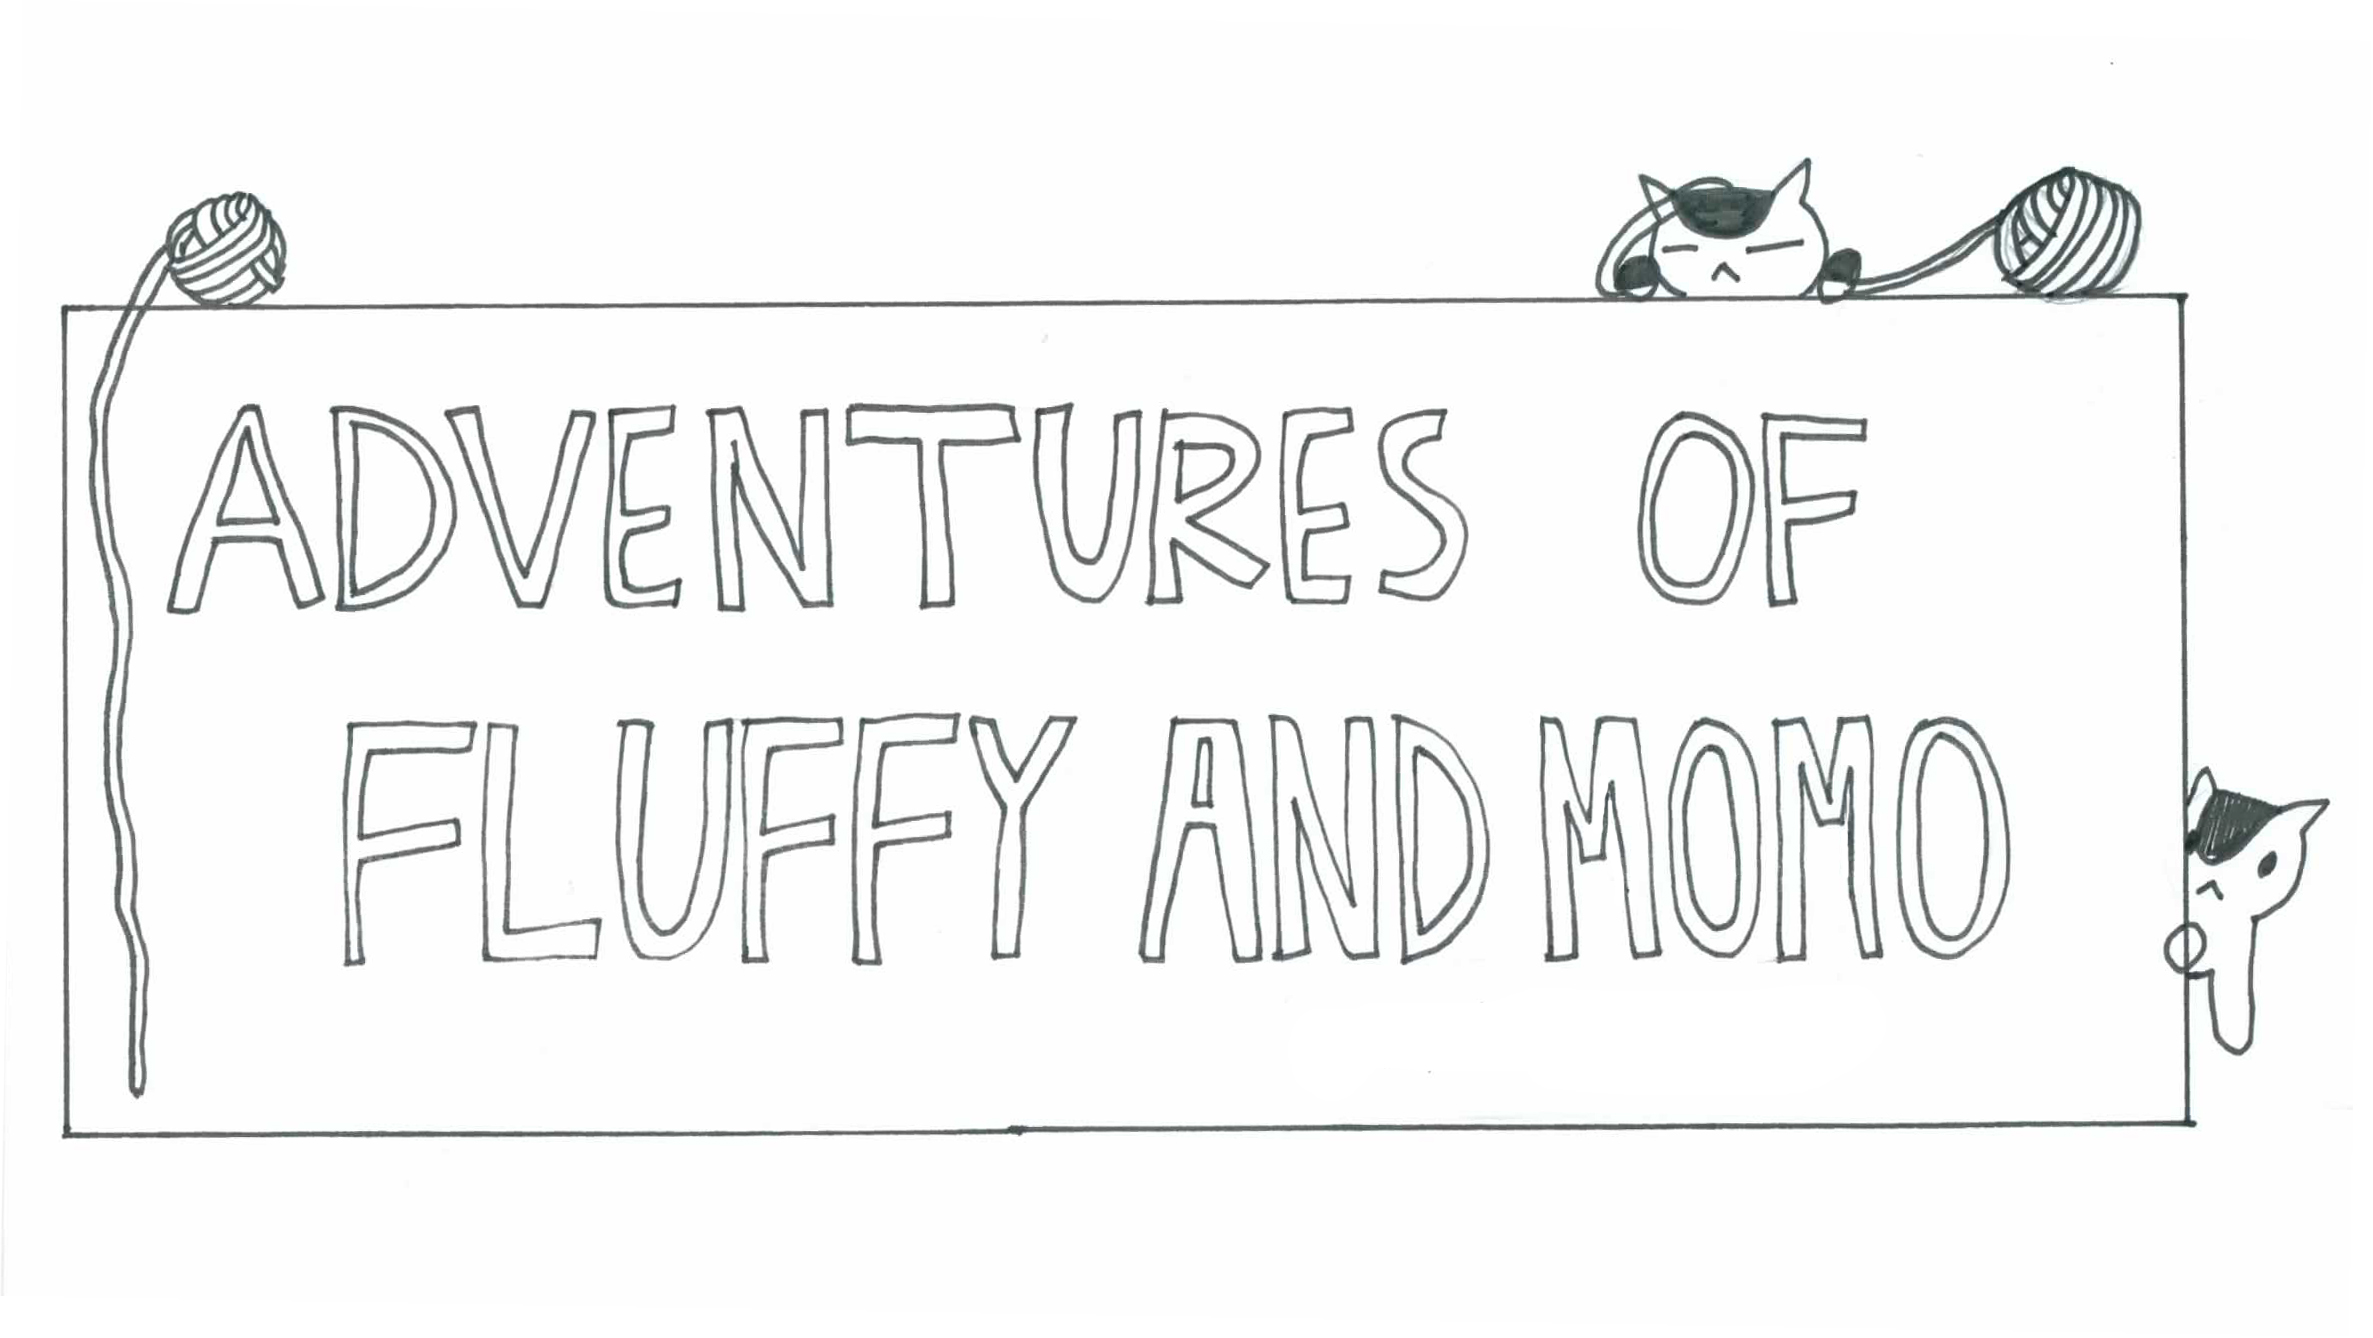 ADVENTURES OF
FLUFFY AND MOMO